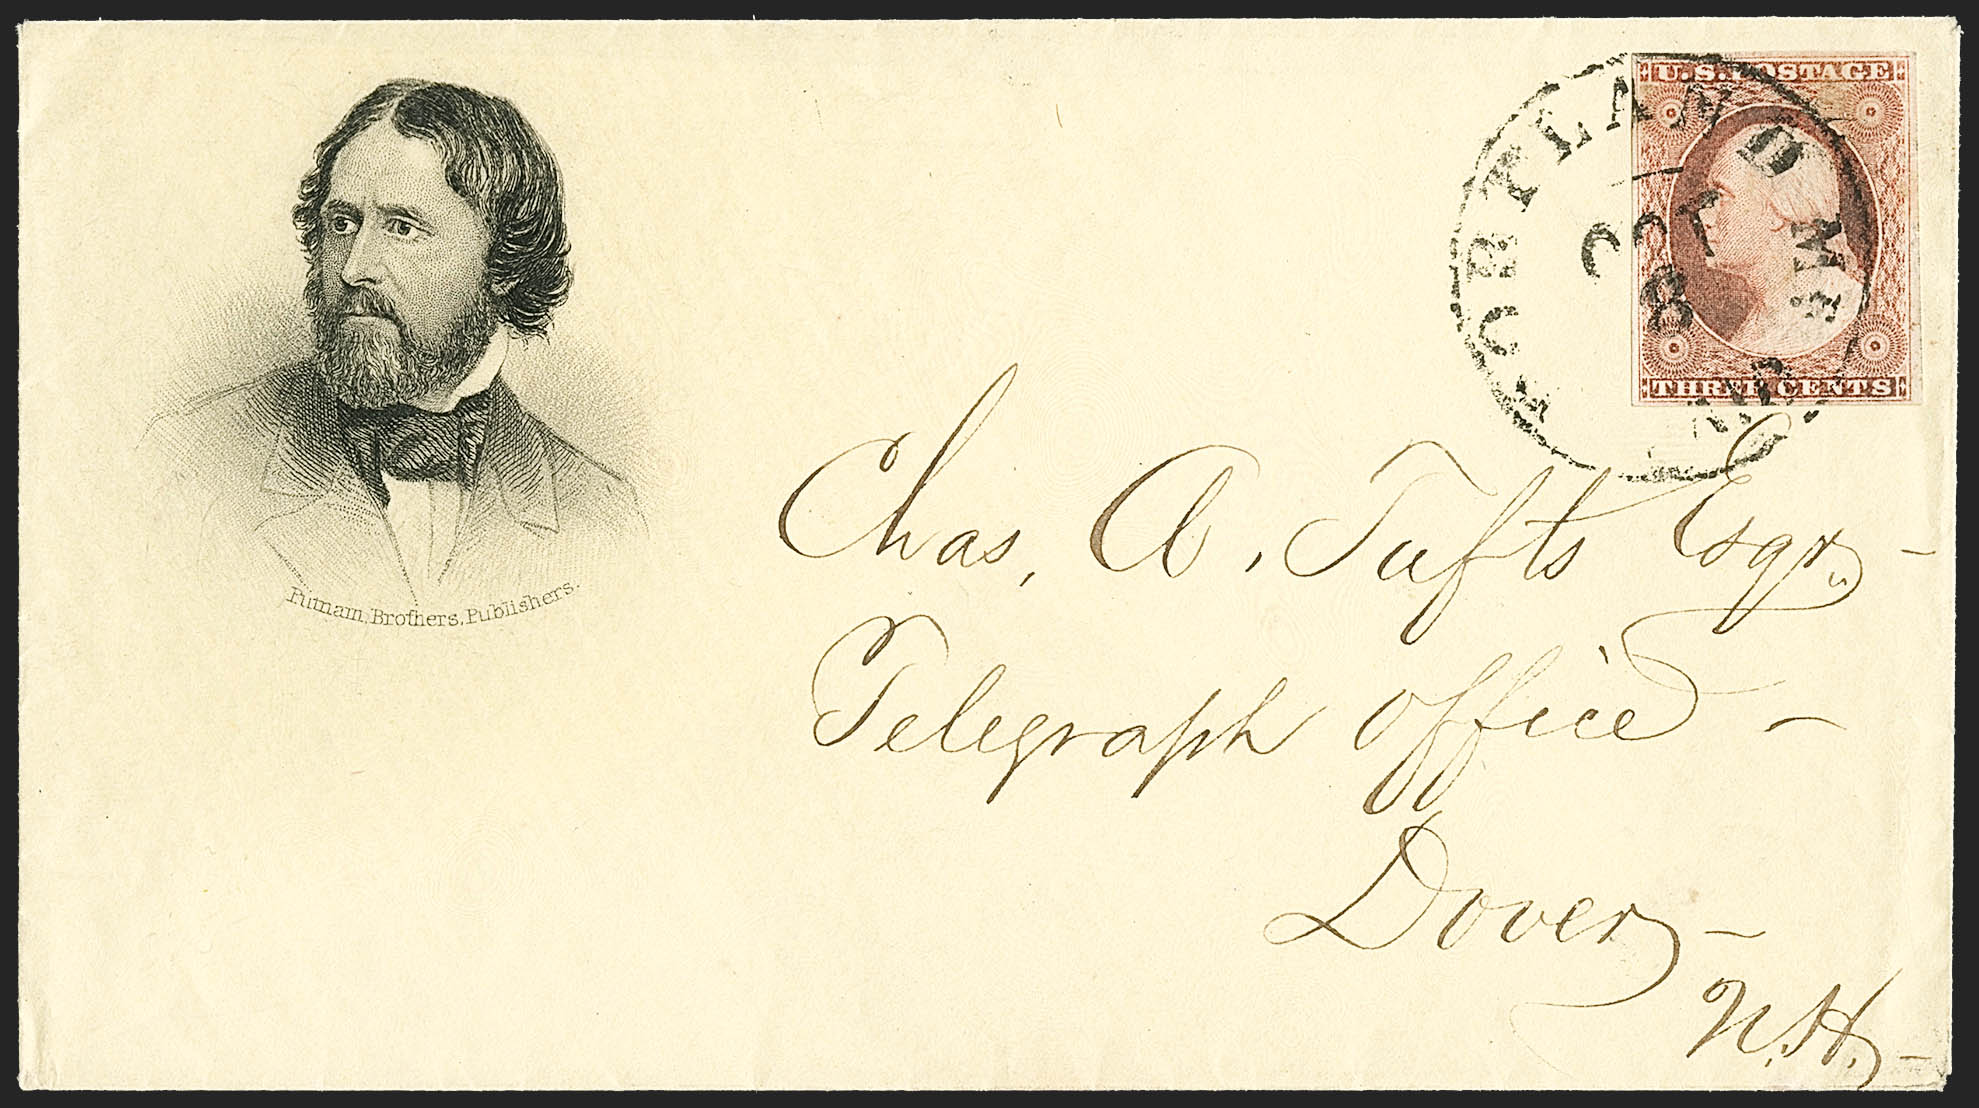 U.S. POSTAGE
PORTLAND ME
OCT
8
PAID
THREE CENTS
Putnam, Brothers, Publishers.
Chas, A, Tufts Esqr,
Telegraph Office -
Dover -
N.H. -